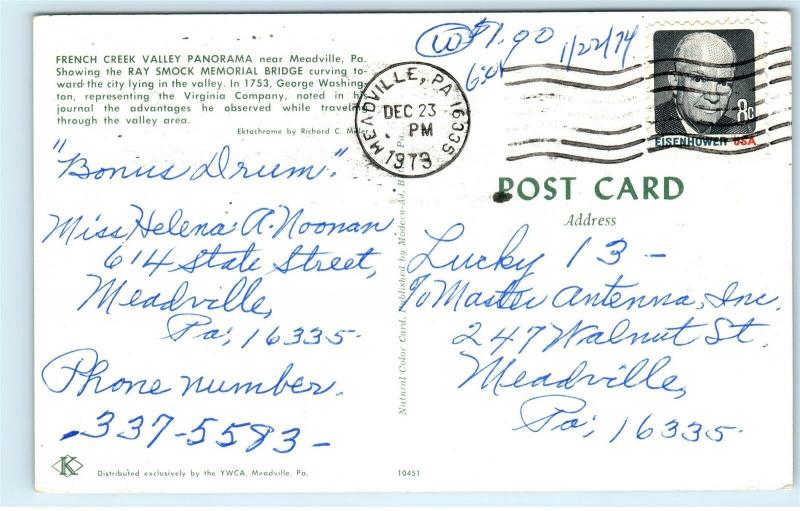 FRENCH CREEK VALLEY PANORAMA near Meadville, Pa.
Showing the RAY SMOCK MEMORIAL BRIDGE curving to-
ward the city lying in the valley. In 1753, George Washing-
ton, representing the Virginia Company, noted in his
journal the advantages he observed while traveling
through the valley area.
Ektachrome by Richard C. Miller
"Bonus Drum."
Miss Helena A. Noonan
614 State Street,
Meadville,
Pa, 16335.
Phone number.
337-5583-
K
Distributed exclusively by the YWCA, Meadville, Pa.
10451
Natural Color Card, Published by Modern-Ad, Pa.
$1.90
1/22/74
MEADVILLE, PA 16335
DEC 23
PM
1973
8c
EISENHOWER USA
POST CARD
Address
Lucky 13-
% Master Antenna, Inc.
247 Walnut St.
Meadville,
Pa, 16335.